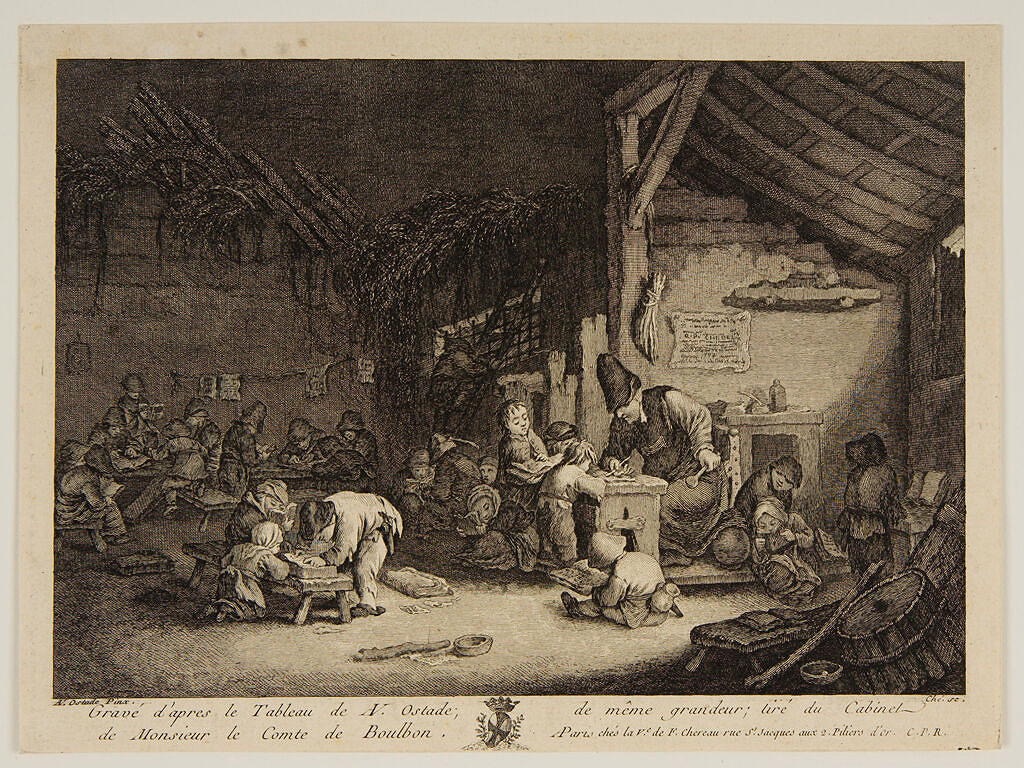 A. Ostade Pinx.
Ché. sc.
Gravé d'apres le Tableau de A. Ostade; de même grandeur; tiré du Cabinet
de Monsieur le Comte de Boulbon. A Paris chés la Vᵉ. de F. Chereau rue Sᵗ. Jacques aux 2. Piliers d'or. C. P. R.